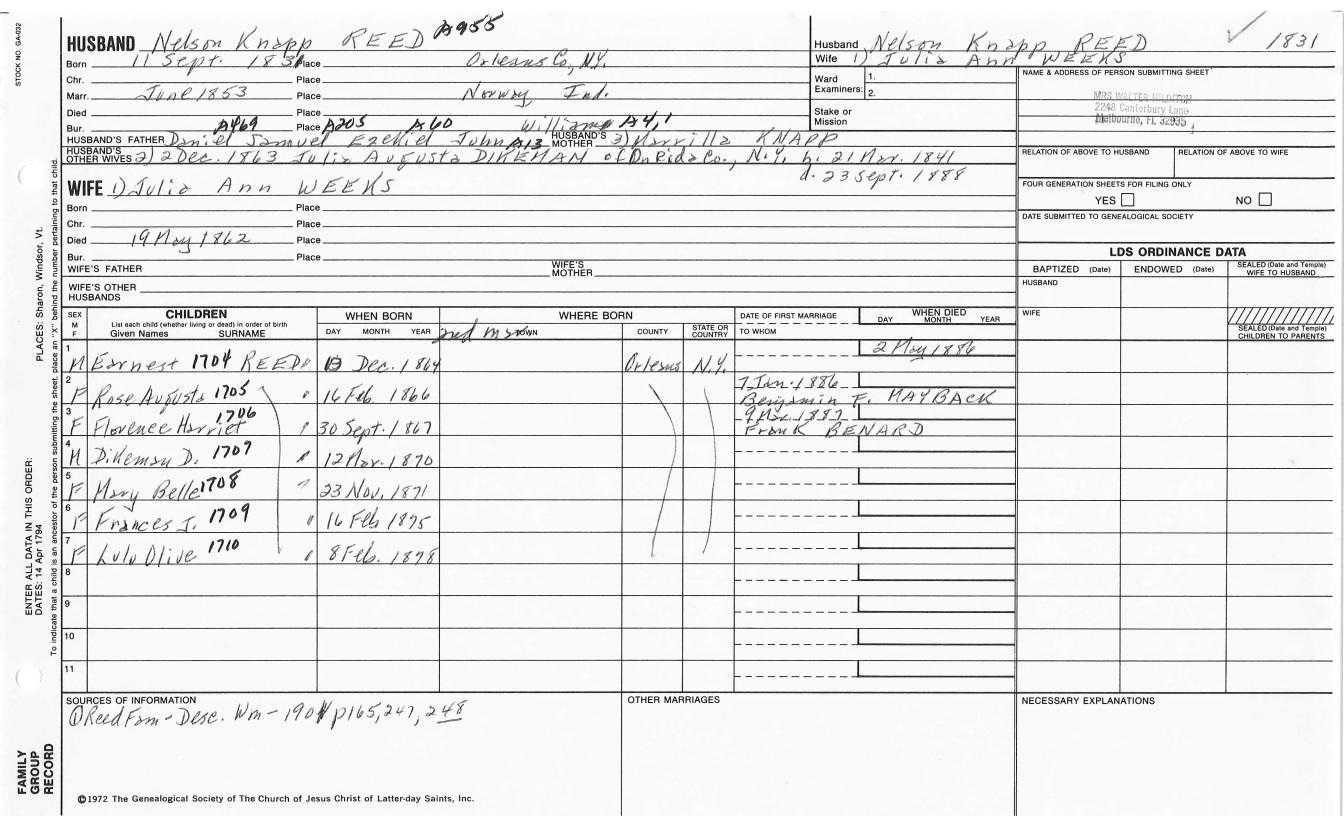 STOCK NO. GA-032
HUSBAND Nelson Knapp REED A955
Born 11 Sept. 1831 Place Orleans Co., N.Y.
Chr. Place
Marr. June 1853 Place Norway, Ind.
Died Place
Bur. Place
A469 A205 A60 William A4,1
HUSBAND'S FATHER Daniel Samuel Ezekiel John A13 HUSBAND'S MOTHER 3) Marrilla KNAPP
HUSBAND'S OTHER WIVES 2) 2 Dec. 1863 Julia Augusta DIKEMAN of Oneida Co., N.Y. b. 21 Mar. 1841
d. 23 Sept. 1888
WIFE 1) Julia Ann WEEKS
Born Place
Chr. Place
Died 19 May 1862 Place
Bur. Place
WIFE'S FATHER WIFE'S MOTHER
WIFE'S OTHER HUSBANDS
Husband Nelson Knapp REED 1831
Wife 1) Julia Ann WEEKS
Ward Examiners: 1.
2.
Stake or Mission
NAME & ADDRESS OF PERSON SUBMITTING SHEET
MRS WALTER
2248 Canterbury Lane
Melbourne, FL 32935
RELATION OF ABOVE TO HUSBAND RELATION OF ABOVE TO WIFE
FOUR GENERATION SHEETS FOR FILING ONLY
YES NO
DATE SUBMITTED TO GENEALOGICAL SOCIETY
LDS ORDINANCE DATA
BAPTIZED (Date) ENDOWED (Date) SEALED (Date and Temple) WIFE TO HUSBAND
HUSBAND
WIFE
SEALED (Date and Temple) CHILDREN TO PARENTS
SEX M F
CHILDREN
List each child (whether living or dead) in order of birth
Given Names SURNAME
WHEN BORN
DAY MONTH YEAR
WHERE BORN
2nd m TOWN COUNTY STATE OR COUNTRY
DATE OF FIRST MARRIAGE
TO WHOM
WHEN DIED
DAY MONTH YEAR
1 M Earnest 1704 REED Dec. 1864 Orleans N.Y. 2 May 1886
2 F Rose Augusta 1705 " 16 Feb. 1866 7 Jan. 1886 Benjamin F. MAYBACK
3 F Florence Harriet 1706 " 30 Sept. 1867 9 Mar. 1887 Frank BENARD
4 M Dikeman D. 1707 " 12 Mar. 1870
5 F Mary Belle 1708 " 23 Nov. 1871
6 F Frances J. 1709 " 16 Feb 1875
7 F Lulu Olive 1710 " 8 Feb. 1878
8
9
10
11
SOURCES OF INFORMATION
① Reed Fam - Desc. Wm - 1901 p165, 247, 248
OTHER MARRIAGES
NECESSARY EXPLANATIONS
©1972 The Genealogical Society of The Church of Jesus Christ of Latter-day Saints, Inc.
FAMILY GROUP RECORD
ENTER ALL DATA IN THIS ORDER:
DATES: 14 Apr 1794 PLACES: Sharon, Windsor, Vt.
To indicate that a child is an ancestor of the person submitting the sheet, place an "X" behind the number pertaining to that child.